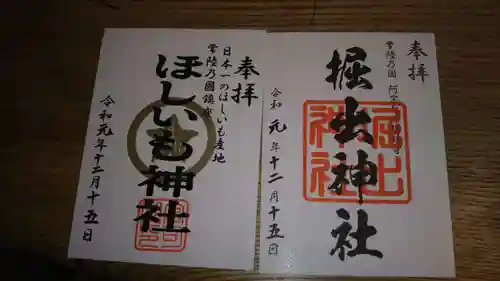 奉拝
常陸乃國
堀出神社
堀出
神社
令和元年十二月十五日
奉拝
日本一のほしいも産地
常陸乃國鎮座
ほしいも神社
令和元年十二月十五日